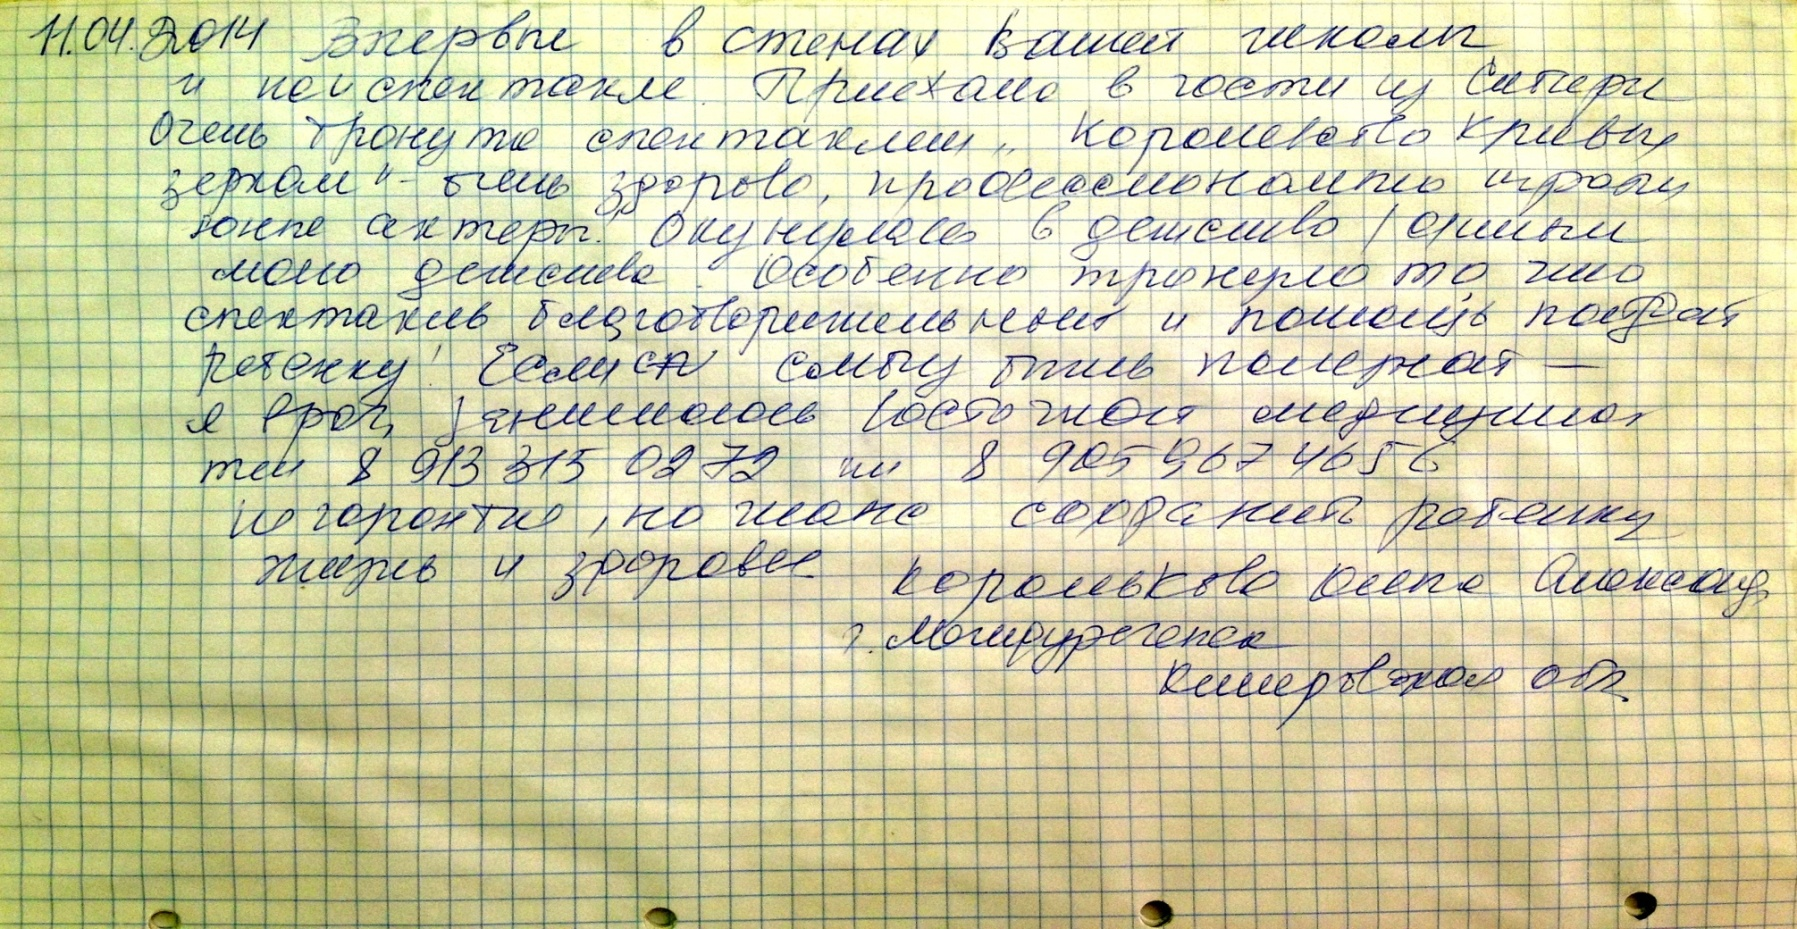 11.04.2014 Впервые в стенах Вашей школы
и на спектакле. Приехала в гости из Сибири
Очень тронута спектаклем „Королевство кривых
зеркал" - очень здорово, профессионально играли
юные актеры. Окунулась в детство /
мою детства. Особенно тронуло то что
спектакль благотворительный и помощь пойдет
ребенку! Если смогу быть полезной —
я врач, занимаюсь Восточной медициной
тел 8 913 315 0272 или 8 905 967 4656
не гарантия, но шанс сохранить ребенку
жизнь и здоровье Королькова Александ
г. Междуреченск
Кемеровская обл